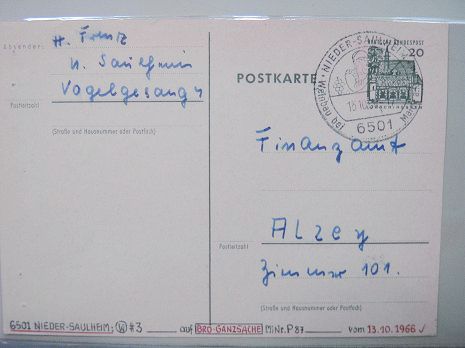 Absender:
H. Frenz
N. Saulheim
Vogelgesang 4
Postleitzahl
(Straße und Hausnummer oder Postfach)
POSTKARTE
DEUTSCHE BUNDESPOST
20
NIEDER-SAULHEIM
6501
Finanzamt
Alzey
Postleitzahl
Zimmer 101.
(Straße und Hausnummer oder Postfach)
6501 NIEDER-SAULHEIM; #3 auf BRD-GANZSACHE MiNr. P 87 vom 13.10.1966